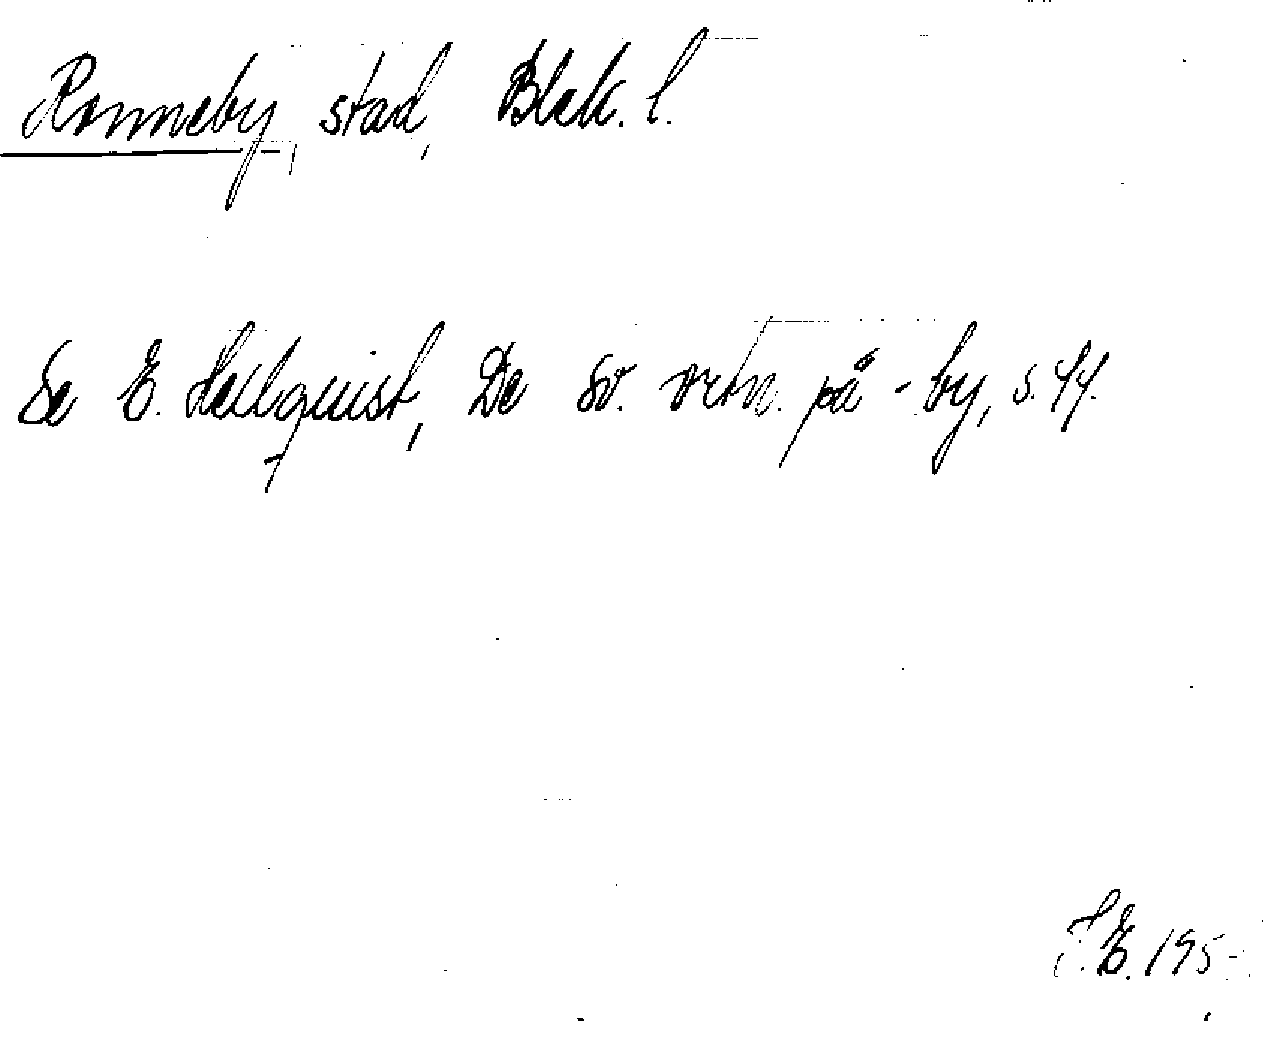 Ronneby, stad, Blek. l.
Se E. Hellquist, De sv. ortn. på -by, s. 44.
F.E. 195